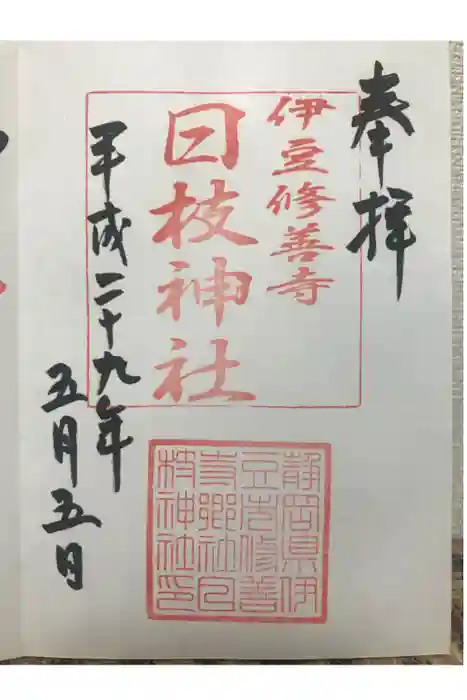 奉拝
伊豆修善寺
日枝神社
平成二十九年
五月五日
静岡県伊
豆志修善
寺郷社日
枝神社印